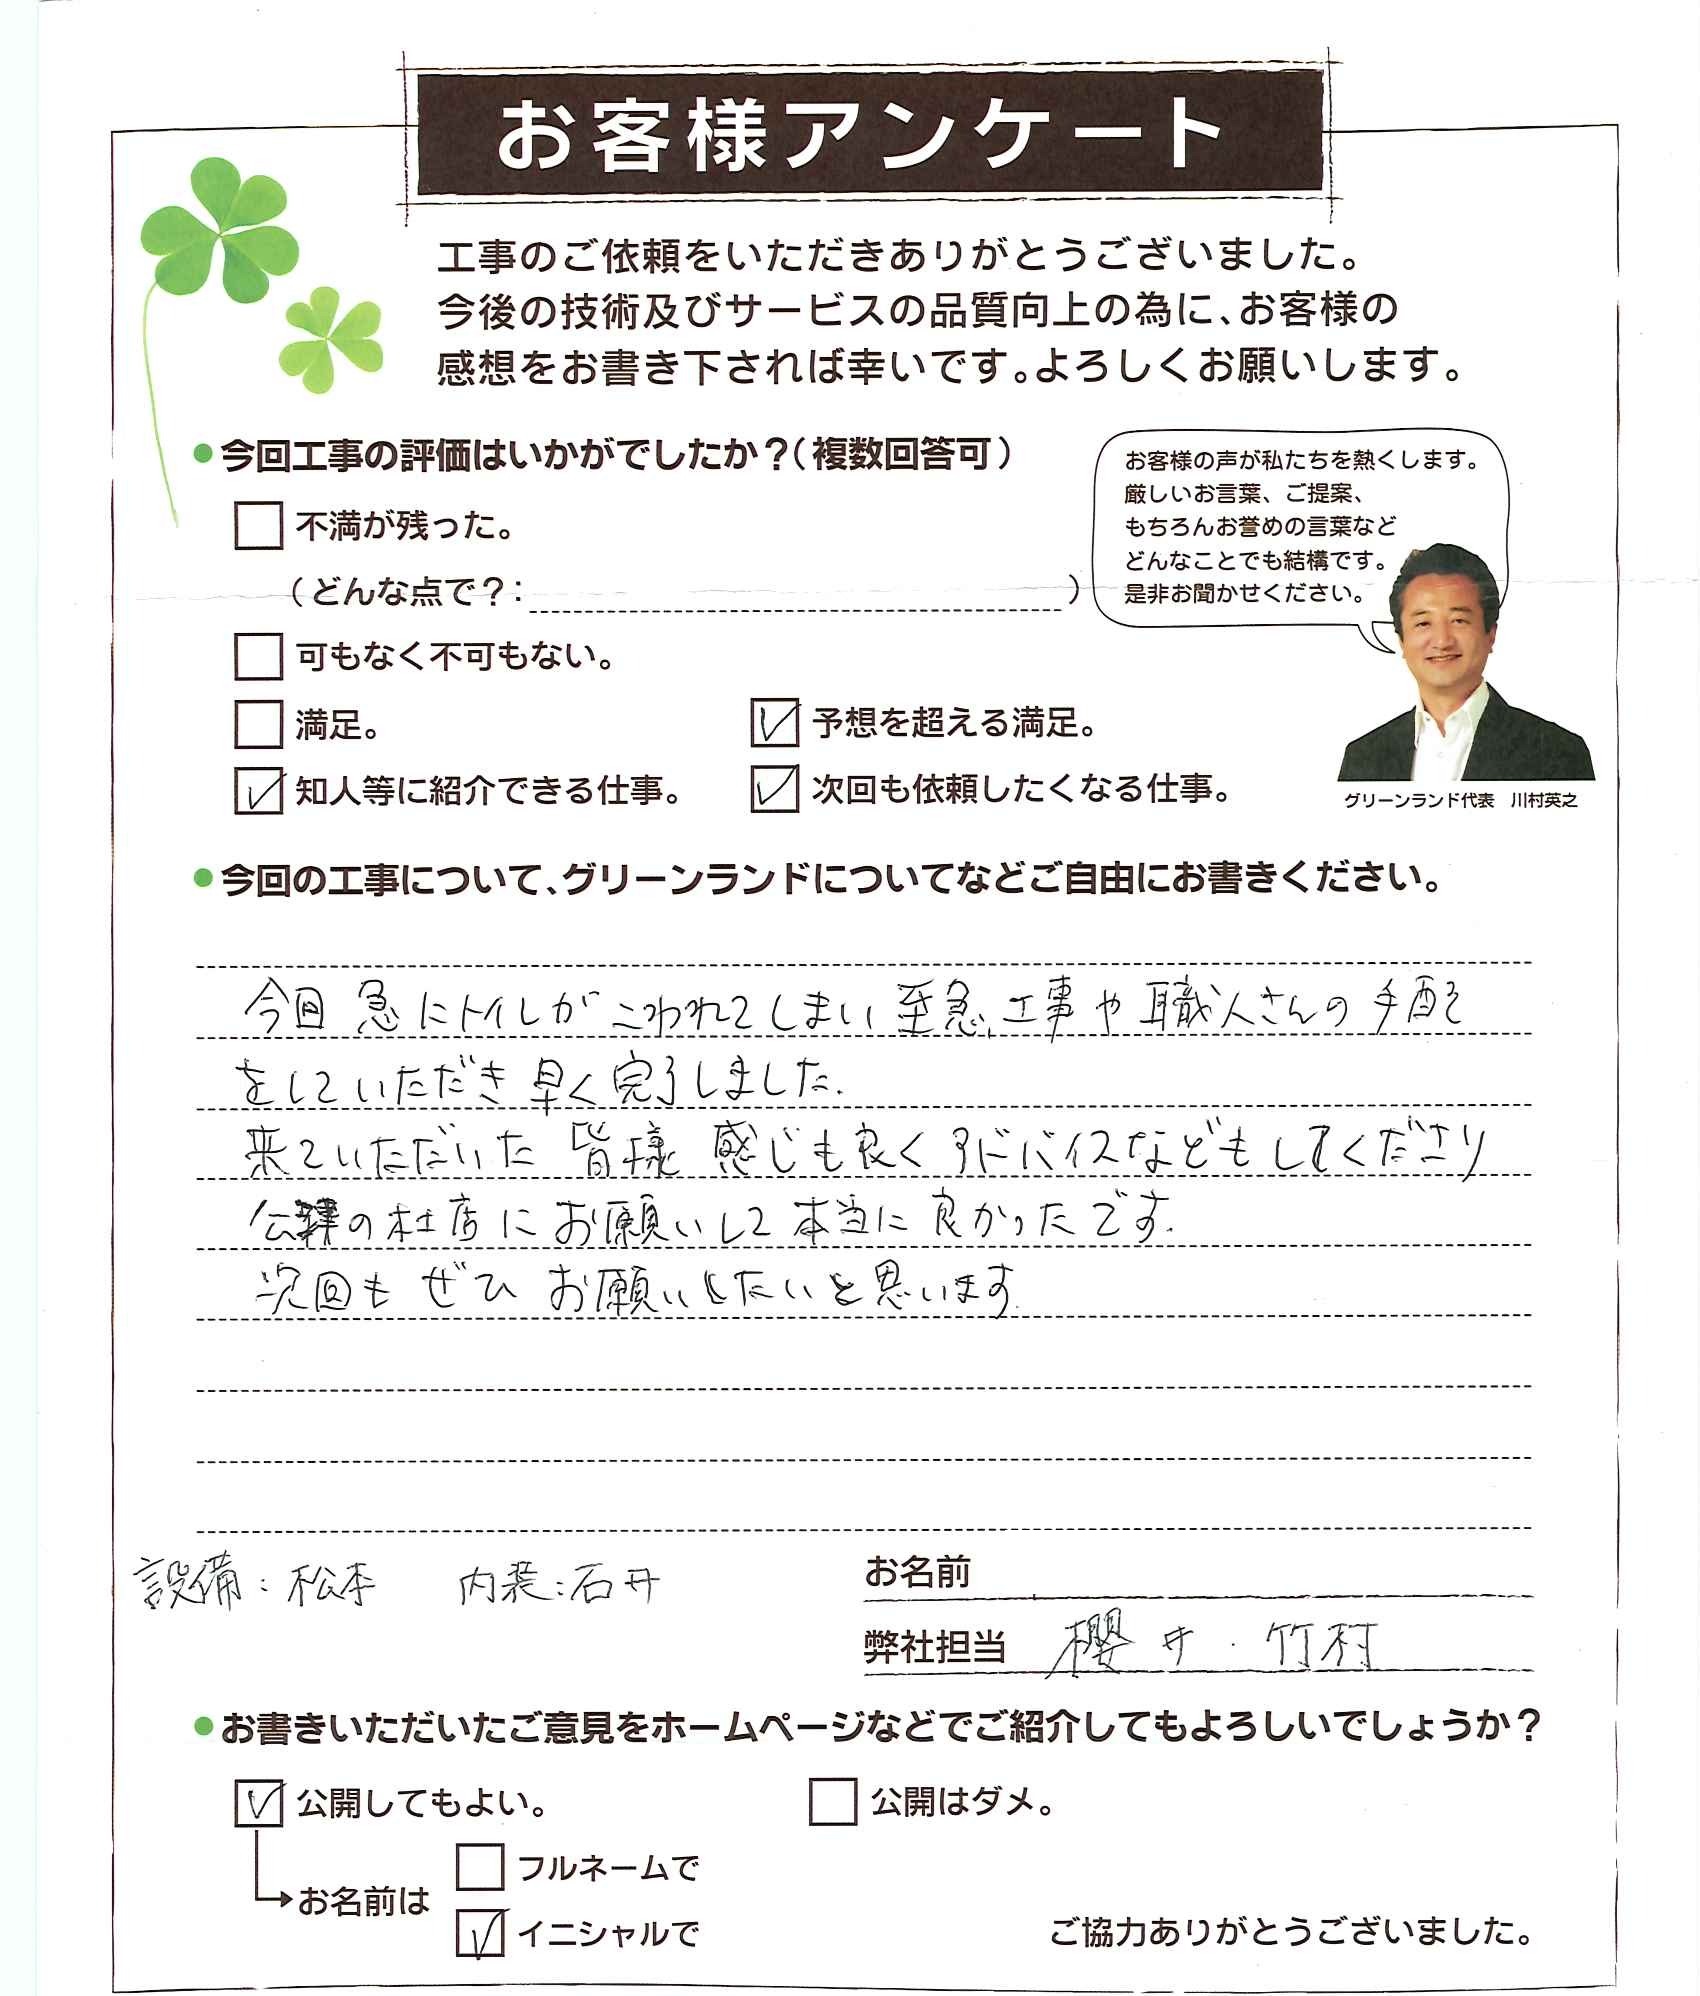 お客様アンケート
工事のご依頼をいただきありがとうございました。
今後の技術及びサービスの品質向上の為に、お客様の
感想をお書き下されば幸いです。よろしくお願いします。
●今回工事の評価はいかがでしたか？（複数回答可）
不満が残った。
（どんな点で？：　）
可もなく不可もない。
満足。
予想を超える満足。
知人等に紹介できる仕事。
次回も依頼したくなる仕事。
お客様の声が私たちを熱くします。
厳しいお言葉、ご提案、
もちろんお誉めの言葉など
どんなことでも結構です。
是非お聞かせください。
グリーンランド代表　川村英之
●今回の工事について、グリーンランドについてなどご自由にお書きください。
今回 急にトイレがこわれてしまい 至急、工事や職人さんの手配を
をしていただき 早く完了しました.
来ていただいた 皆様 感じも良く アドバイスなどもしてくださり
の社店に お願いして 本当に 良かったです.
次回も ぜひ お願いしたいと思います.
設備：松本　内装：石井
お名前
弊社担当　櫻井・竹村
●お書きいただいたご意見をホームページなどでご紹介してもよろしいでしょうか？
公開してもよい。
公開はダメ。
お名前は
フルネームで
イニシャルで
ご協力ありがとうございました。